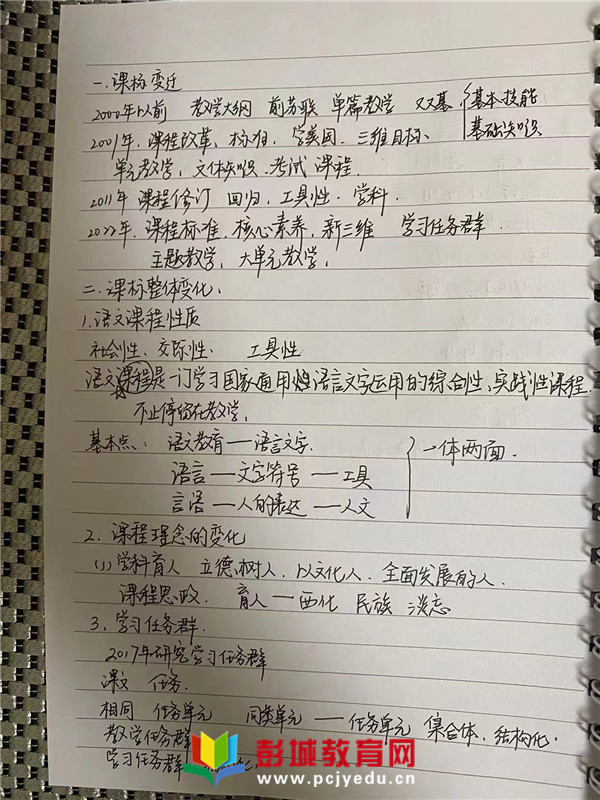 一.课标变迁
2000年以前 教学大纲 前苏联 单篇教学 双基 基本技能
基础知识
2001年.课程改革、标准.学美国.三维目标.
单元教学,文体知识.考试课程.
2011年 课程修订 回归.工具性.学科.
2022年.课程标准.核心素养.新三维 学习任务群.
主题教学.大单元教学.
二.课标整体变化.
1.语文课程性质
社会性、交际性. 工具性
语文课程是一门学习国家通用语言文字运用的综合性、实践性课程.
不止停留在教学.
基本点: 语文教育—语言文字. 一体两面.
语言—文字符号—工具
言语—人的表达—人文
2.课程理念的变化
(1)学科育人 立德树人.以文化人.全面发展的人.
课程思政. 育人—西化 民族 淡忘
3.学习任务群.
2017年研究学习任务群
课文 任务.
相同 任务单元 同类单元—任务单元 集合体.结构化.
教学任务群
学习任务群
彭城教育网
www.pcjyedu.cn